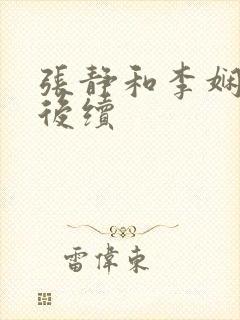 張靜和李娴
後續
雷偉東